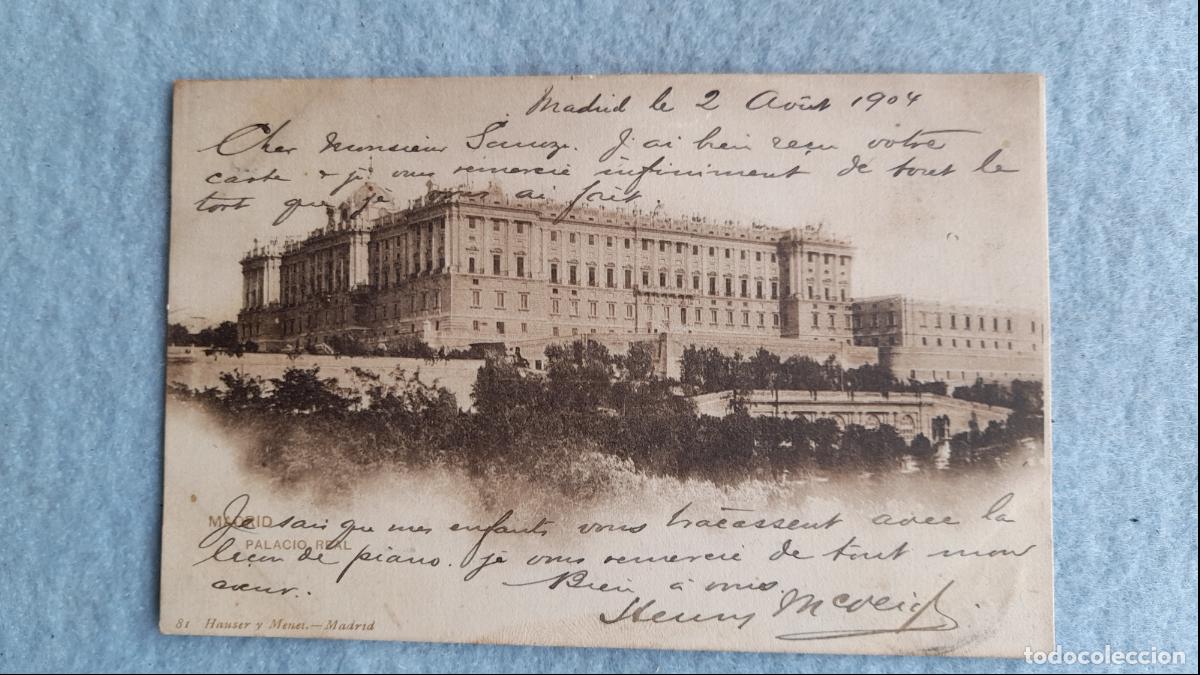 Madrid le 2 Août 1904
Cher Monsieur J'ai bien reçu votre
carte & je vous remercie infiniment de tout le
tort que je vous ai fait.
MADRID
PALACIO REAL
Je sais que mes enfants vous tracassent avec la
leçon de piano. je vous remercie de tout mon
cœur. Bien à vous.
Henry
81 Hauser y Menet.—Madrid
todocoleccion